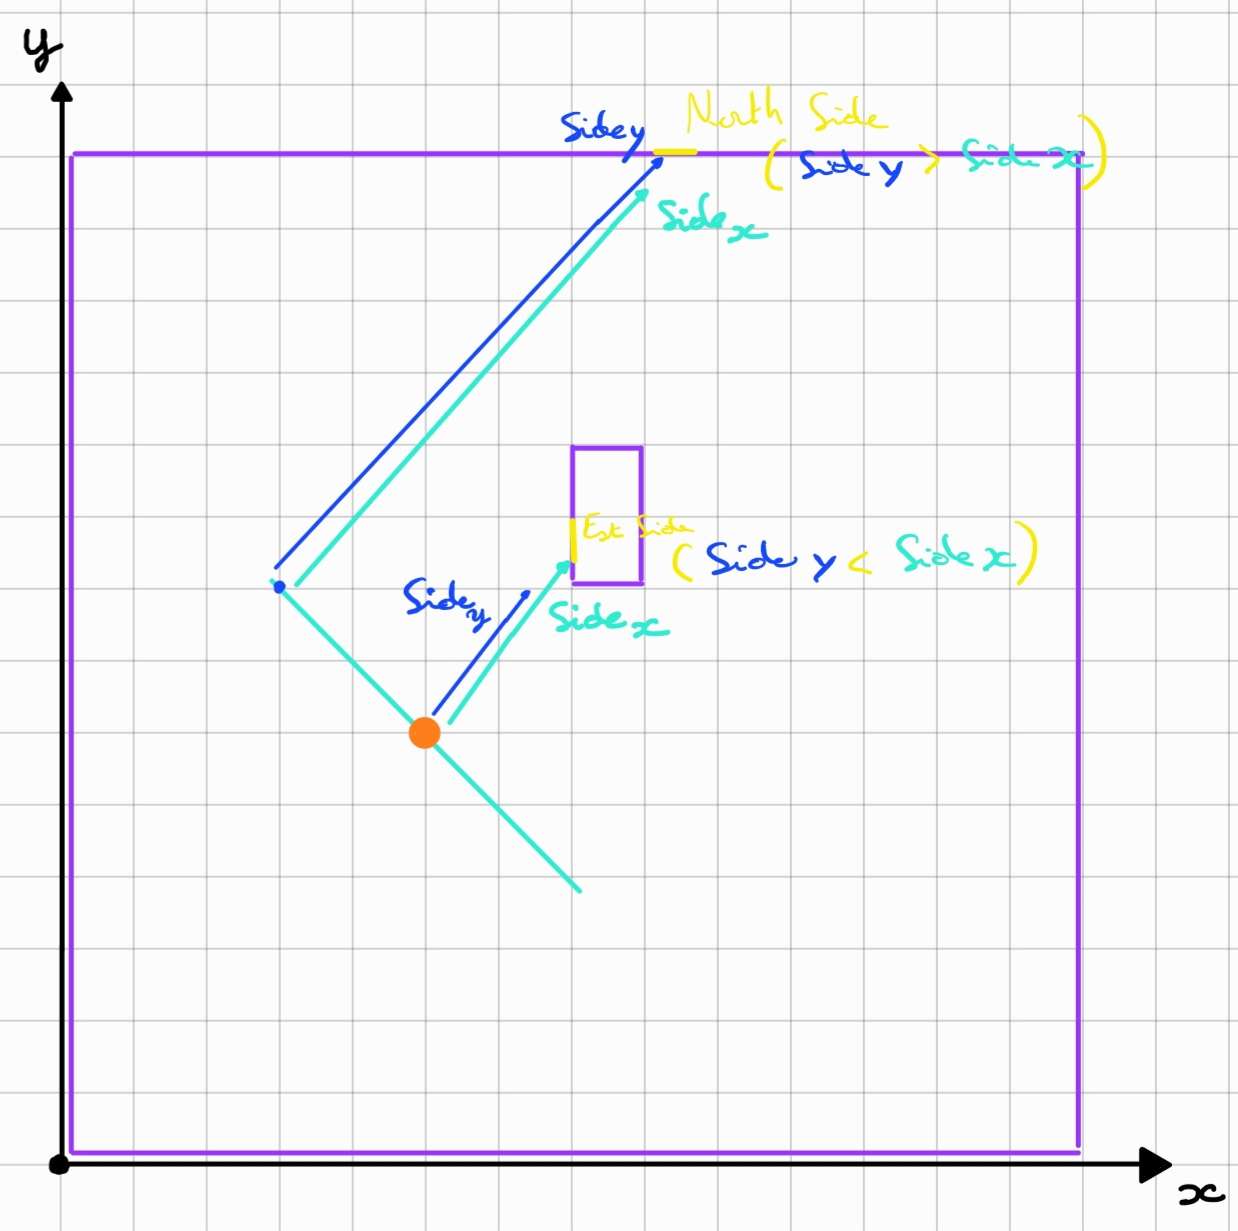 y
North Side
Sidey
(Sidey > Side x)
Sidex
Est Side
(Side y < Side x)
Sidey
Sidex
x